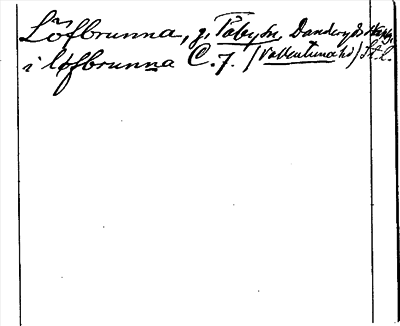 Löfbrunna, g. Täby sn, Danderyds skg.
i löfbrunna C. 7. (Vallentuna hd) St. l.